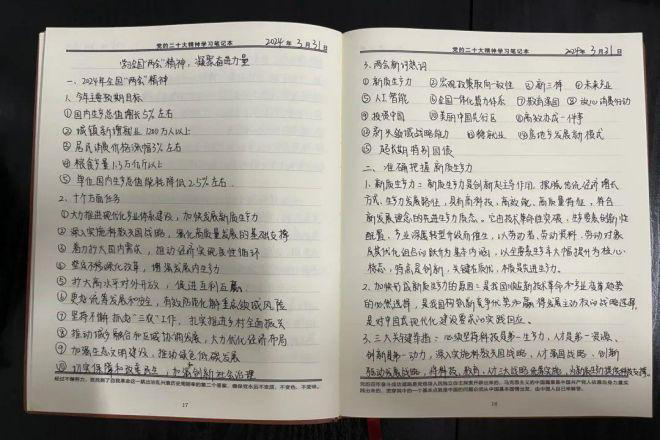 党的二十大精神学习笔记本
2024年3月31日
学习全国"两会"精神，凝聚奋进力量
一、2024年全国"两会"精神
1、今年主要预期目标
①国内生产总值增长5%左右
②城镇新增就业1200万人以上
③居民消费价格涨幅3%左右
④粮食产量1.3万亿斤以上
⑤单位国内生产总值能耗降低2.5%左右
2、十个方面任务
①大力推进现代化产业体系建设，加快发展新质生产力
②深入实施科教兴国战略，强化高质量发展的基础支撑
③着力扩大国内需求，推动经济实现良性循环
④坚定不移深化改革，增强发展内生动力
⑤扩大高水平对外开放，促进互利共赢
⑥更好统筹发展和安全，有效防范化解重点领域风险
⑦坚持不懈抓好"三农"工作，扎实推进乡村全面振兴
⑧推动城乡融合和区域协调发展，大力优化经济布局
⑨加强生态文明建设，推动绿色低碳发展
⑩切实保障和改善民生，加强创新社会治理
17
党的二十大精神学习笔记本
2024年3月31日
3、两会新词热词
①新质生产力 ②宏观政策取向一致性 ③新三样 ④未来产业
⑤人工智能 ⑥全国一体化算力体系 ⑦教育强国 ⑧放心消费行动
⑨投资中国 ⑩美丽中国先行区 ⑪高效办成一件事
⑫新兴领域战略能力 ⑬稳就业 ⑭房地产发展新模式
⑮超长期特别国债
二、准确把握新质生产力
1、新质生产力：新质生产力是创新起主导作用，摆脱传统经济增长
方式、生产力发展路径，具有高科技、高效能、高质量特征，符合
新发展理念的先进生产力质态。它由技术革命性突破、生产要素创新性
配置、产业深度转型升级而催生，以劳动者、劳动资料、劳动对象
及其优化组合的跃升为基本内涵，以全要素生产率大幅提升为核心
标志，特点是创新，关键在质优，本质是先进生产力。
2、加快形成新质生产力的原因：是我国顺应新技术革命和产业变革趋势
的必然选择，是我国构筑新竞争优势和赢得发展主动权的战略选择，
是对中国式现代化建设要求的实践回应。
3、三大关键举措：必须坚持科技是第一生产力、人才是第一资源、
创新是第一动力，深入实施科教兴国战略、人才强国战略、创新
驱动发展战略，将科技、教育、人才三大战略
18